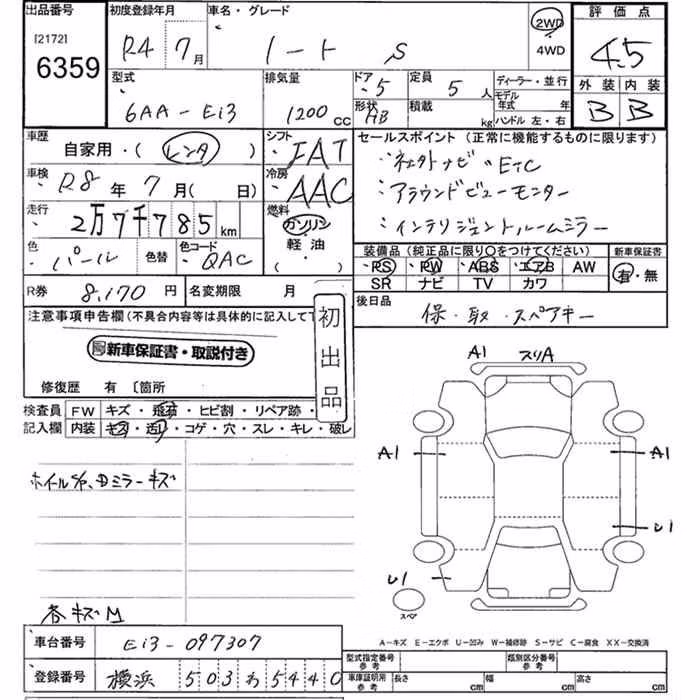 出品番号 初度登録年月 車名・グレード 評価点
[2172]
6359 R4 7月 ノート S 2WD 4.5
4WD
型式 排気量 ドア 5 定員 5人 ディーラー・並行 外装 内装
6AA-E13 1200cc 形状 HB 積載 kg モデル年式 年 B B
ハンドル 左・右
車歴 自家用・(レンタ) シフト FAT セールスポイント (正常に機能するものに限ります)
車検 R8年7月(日) 冷房 AAC ・ネオトナビ・ETC
・アラウンドビューモニター
走行 2万7千785km 燃料 ガソリン ・インテリジェントルームミラー
軽油
色 パール 色替 色コード QAC ( ・ )
装備品(純正品に限り〇をつけてください) 新車保証書
PS PW ABS エアB AW 有・無
SR ナビ TV カワ
R券 8,170円 名変期限 月
後日品 保・取・スペアキー
注意事項申告欄(不具合内容等は具体的に記入して下
初出品
新車保証書・取説付き
修復歴 有 〔箇所
検査員 FW キズ・飛石・ヒビ割・リペア跡・
記入欄 内装 キズ・汚レ・コゲ・穴・スレ・キレ・破レ
A1 スリA
A1 A1
ホイールS/C、Dミラーキズ
U1
U1
スペア
各キズM
A-キズ E-エクボ U-凹ミ W-補修跡 S-サビ C-腐食 XX-交換済
車台番号 E13-097307
型式指定番号 参考 類別区分番号 参考
登録番号 横浜 503わ5440
車庫証明用 参考 長さ cm 幅 cm 高さ cm